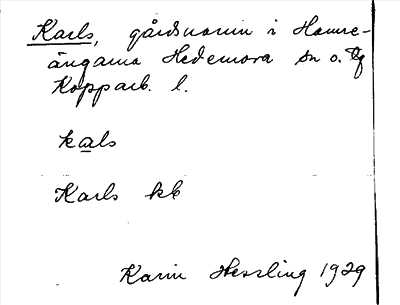 Karls, gårdsnamn i Hamre-
ängarna Hedemora sn o. tg
Kopparb. l.
kals
Karls kb
Karin Hessling 1929